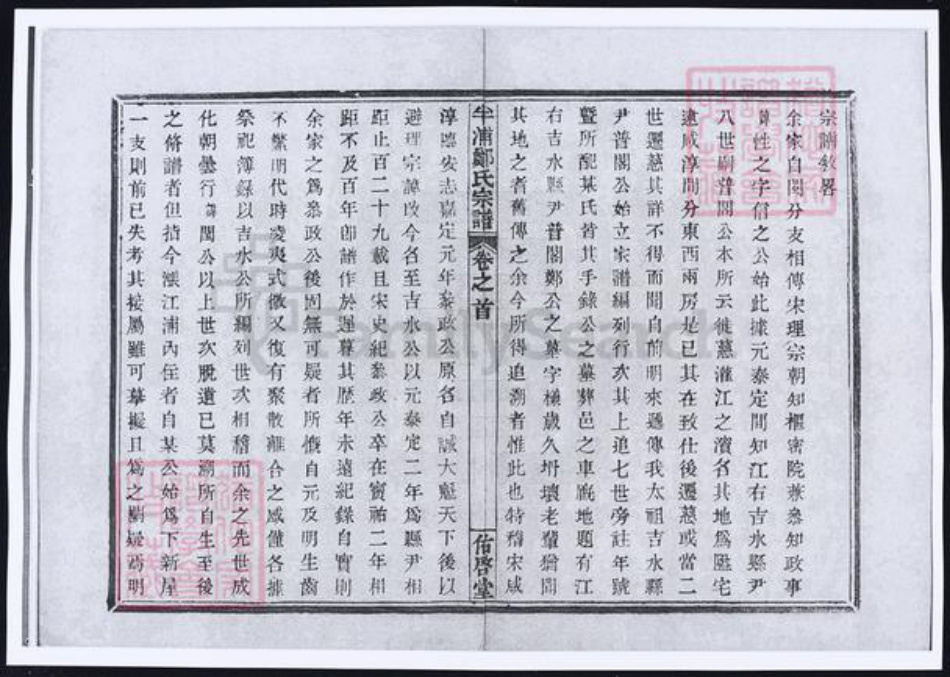 宗譜敘畧
余家自閩分支相傳宋理宗朝知樞密院兼參知政事
性之字信之公始此據元泰定間知江右吉水縣尹
八世嗣普閣公本所云徙慈灌江之濱名其地為鄭宅
遠咸淳間分東西兩房是已其在致仕後遷慈或當二
世遷慈其詳不得而聞自前明來遞傳我太祖吉水縣
尹普閣公始立家譜編列行次其上追七世旁註年號
暨所配某氏皆其手錄公之墓葬邑之車廐地題有江
右吉水縣尹普閣鄭公之墓字樣歲久坍壞老輩猶聞
其地之者舊傳之余今所得追溯者惟此也特稽宋咸
半浦鄭氏宗譜 卷之首 佑啓堂
淳臨安志嘉定元年參政公原名自誠大魁天下後以
避理宗諱改今名至吉水公以元泰定二年為縣尹相
距止百二十九載且宋史紀參政公卒在寶祐二年相
距不及百年卽譜作於遲暮其歷年未遠紀錄自實則
余家之為參政公後固無可疑者所慨自元及明生齒
不繁明代時淩夷式微又復有聚散離合之感僅各據
祭祀簿錄以吉水公所編列世次相稽而余之先世成
化朝曇行 閩公以上世次脫遺已莫溯所自生至後
之脩譜者但指今漲江浦內住者自某公始為下新屋
一支則前已失考其接屬雖可摹擬且為之闕疑焉明